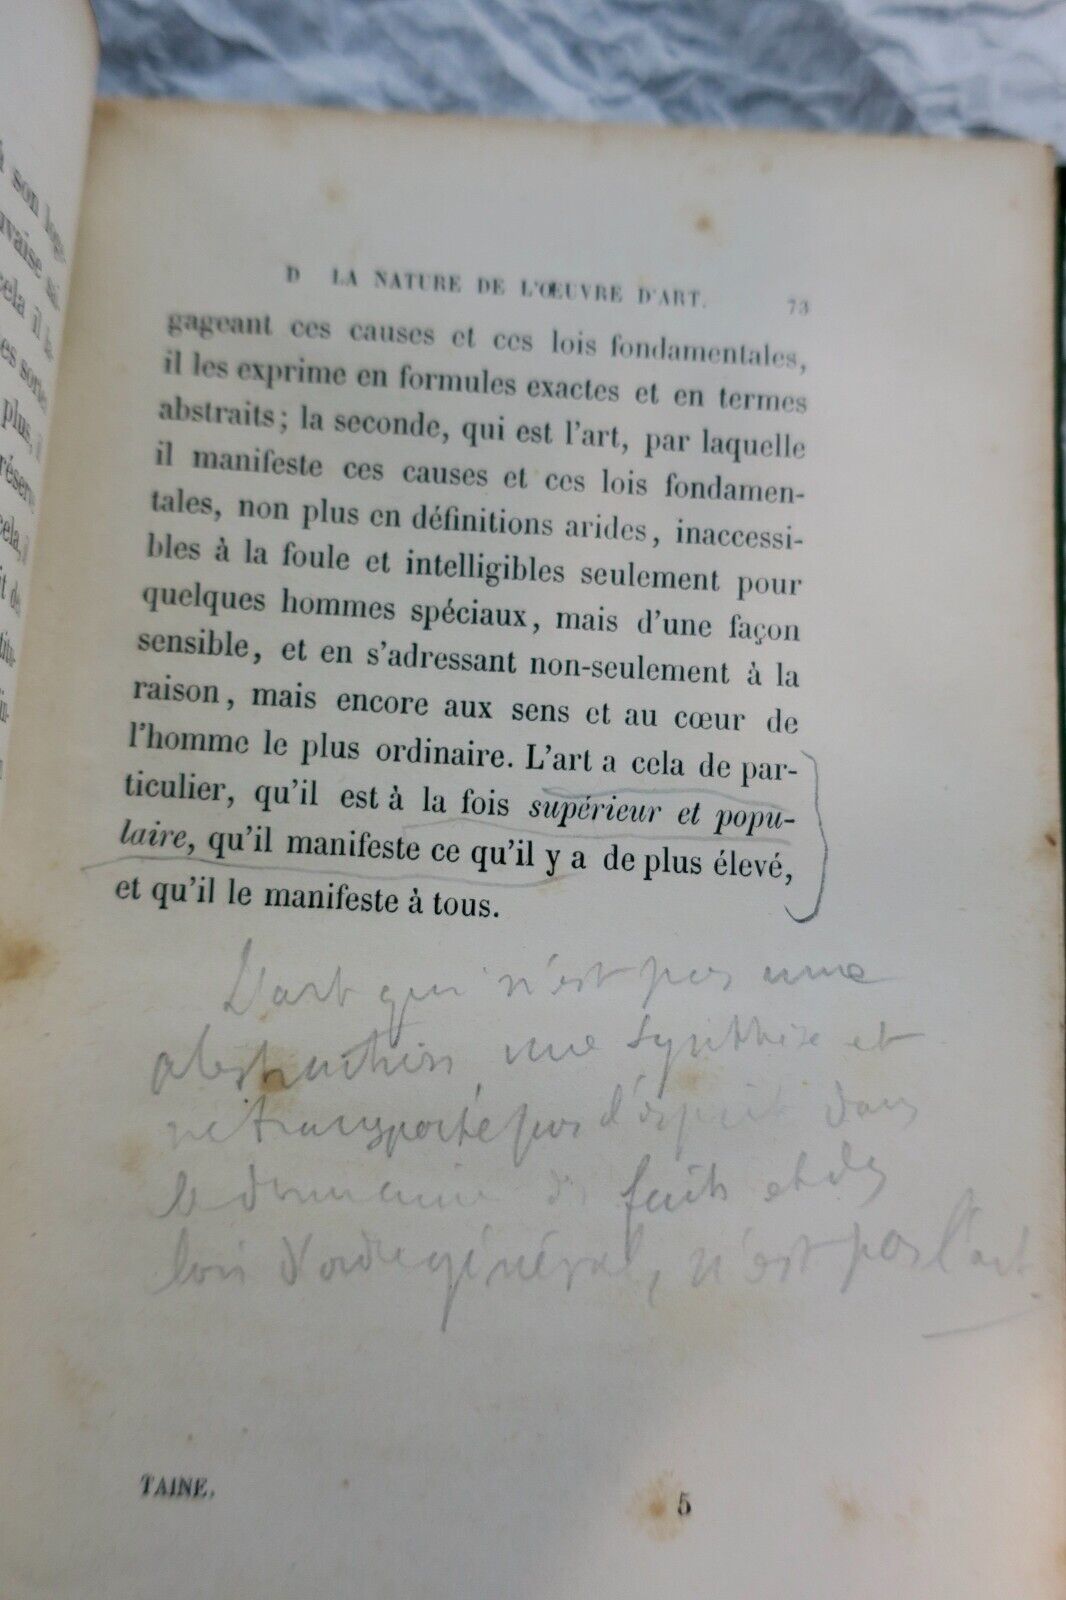 à son log-
uvaise
cela il
es sorte
plus, il
réserve
cela, i
it de
D LA NATURE DE L'ŒUVRE D'ART. 73
gageant ces causes et ces lois fondamentales,
il les exprime en formules exactes et en termes
abstraits; la seconde, qui est l'art, par laquelle
il manifeste ces causes et ces lois fondamen-
tales, non plus en définitions arides, inaccessi-
bles à la foule et intelligibles seulement pour
quelques hommes spéciaux, mais d'une façon
sensible, et en s'adressant non-seulement à la
raison, mais encore aux sens et au cœur de
l'homme le plus ordinaire. L'art a cela de par-
ticulier, qu'il est à la fois supérieur et popu-
laire, qu'il manifeste ce qu'il y a de plus élevé,
et qu'il le manifeste à tous.
L'art qui n'est pas une
abstraction une synthèse et
transporté par l'esprit dans
le domaine des faits et des
lois d'ordre général, n'est pas l'art
TAINE. 5